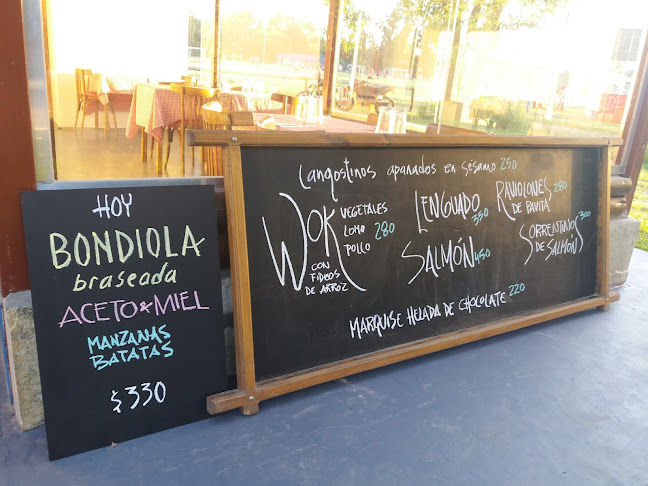 HOY
BONDIOLA
braseada
ACETO x MIEL
MANZANAS
BATATAS
$330
Langostinos apanados en sésamo 250
WOK
VEGETALES
LOMO 280
POLLO
CON
FIDEOS
DE ARROZ
LENGUADO
350
SALMÓN 450
RAVIOLONES
DE PAVITA 280
SORRENTINOS 300
DE SALMÓN
MARQUISE HELADA DE CHOCOLATE 220